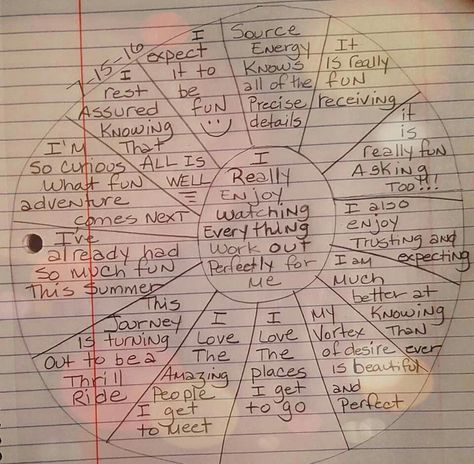 7-15-16
I
Really
Enjoy
watching
Everything
work out
Perfectly for
me
I
expect
it to
be
fun
Source
Energy
Knows
all of the
Precise
details
It
is really
fun
receiving
it
is
really fun
Asking
Too!!!
I also
enjoy
Trusting and
expecting
I am
Much
better at
Knowing
Than
ever
My
Vortex
of desire
is beautiful
and
Perfect
I
Love
The
places
I get
to go
I
Love
The
Amazing
People
I get
to meet
This
Journey
is turning
out to be a
Thrill
Ride
I've
already had
so much fun
This Summer
I'm
so curious
what fun
adventure
comes next
I
rest
Assured
Knowing
That
ALL IS
WELL